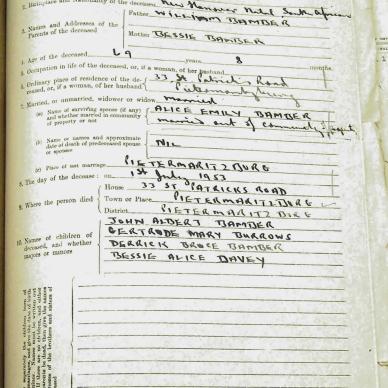 2. Birthplace and Nationality of the deceased New Hanover Natal South African
3. Names and Addresses of the Parents of the deceased
Father WILLIAM BAMBER
Mother BESSIE BAMBER
4. Age of the deceased 69 years 8 months.
5. Occupation in life of the deceased, or, if a woman, of her husband
6. Ordinary place of residence of the deceased, or, if a woman, of her husband
33 St Patricks Road
Pietermaritzburg
7. Married, or unmarried, widower or widow married
(a) Name of surviving spouse (if any) and whether married in community of property or not
ALICE EMILY BAMBER
married out of community
(b) Name or names and approximate date of death of predeceased spouse or spouses
NIL
(c) Place of last marriage PIETERMARITZBURG
8. The day of the decease: on 1st July 1953
9. Where the person died
House 33 ST PATRICKS ROAD
Town or Place PIETERMARITZBURG
District PIETERMARITZBURG
10. Names of children of deceased, and whether majors or minors
JOHN ALBERT BAMBER
GERTRUDE MARY BURROWS
DERRICK BRUCE BAMBER
BESSIE ALICE DAVEY